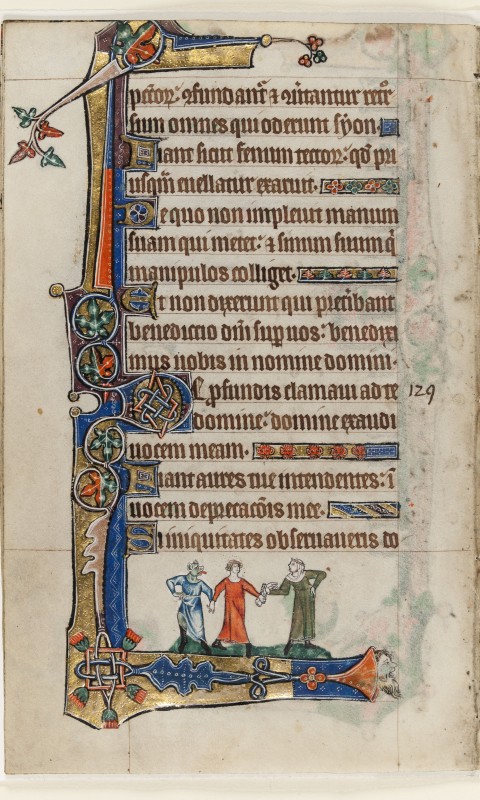 pctor̄: ꝯfundant̄ ⁊ ꝯūtantur retr̄
sum omnes qui oderunt syon.
Fiant sicut fenum tector̄: qd̄ pri
usqm̄ euellatur exaruit.
De quo non impleuit manum
suam qui metet: ⁊ sinum suum q̄
manipulos colliget.
Et non dixerunt qui pret̄ibant
benediccio dn̄i suꝑ uos: benedixi
mus uobis in nomine domini.
De ꝓfundis clamaui ad te 129
domine: domine exaudi
uocem meam.
Fiant aures tue intendentes: ī
uocem dep̄cacōis mee.
Si iniquitates obseruaueris do